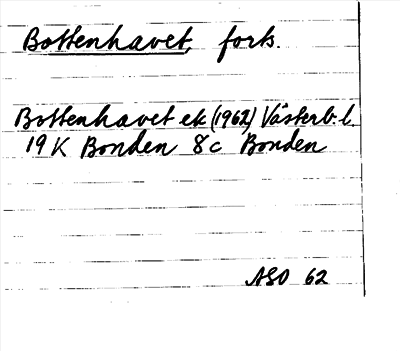 Bottenhavet, forts.
Bottenhavet ek (1962) Västerb. l.
19 K Bonden 8c Bonden
ASO 62